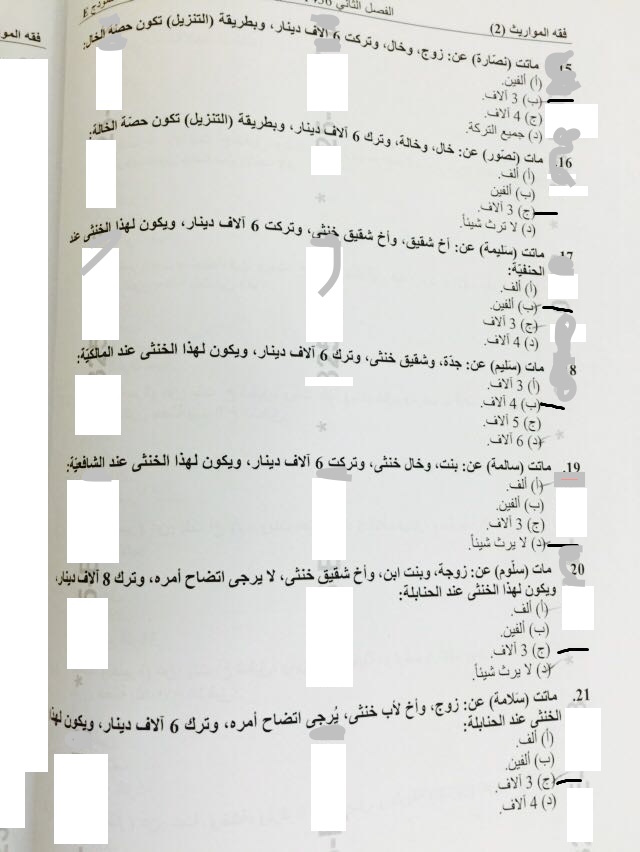 الفصل الثاني
فقه المواريث (2)
15. ماتت (نصّارة) عن: زوج، وخال، وتركت 6 آلاف دينار، وبطريقة (التنزيل) تكون حصّة الخال:
أ) ألفين.
ب) 3 آلاف.
ج) 4 آلاف.
د) جميع التركة.
16. مات (نصّور) عن: خال، وخالة، وترك 6 آلاف دينار، وبطريقة (التنزيل) تكون حصّة الخالة:
أ) ألف.
ب) ألفين
ج) 3 آلاف.
د) لا ترث شيئاً.
17. ماتت (سَليمة) عن: أخ شقيق، وأخ شقيق خنثى، وتركت 6 آلاف دينار، ويكون لهذا الخنثى عند
الحنفيّة:
أ) ألف.
ب) ألفين.
ج) 3 آلاف
د) 4 آلاف.
8 مات (سَليم) عن: جدّة، وشقيق خنثى، وترك 6 آلاف دينار، ويكون لهذا الخنثى عند المالكيّة:
أ) 3 آلاف.
ب) 4 آلاف.
ج) 5 آلاف.
د) 6 آلاف.
19. ماتت (سالمة) عن: بنت، وخال خنثى، وتركت 6 آلاف دينار، ويكون لهذا الخنثى عند الشافعيّة:
أ) ألف.
ب) ألفين.
ج) 3 آلاف.
د) لا يرث شيئاً.
20 مات (سلّوم) عن: زوجة، وبنت ابن، وأخ شقيق خنثى، لا يرجى اتضاح أمره، وترك 8 آلاف دينار،
ويكون لهذا الخنثى عند الحنابلة:
أ) ألف.
ب) ألفين.
ج) 3 آلاف.
د) لا يرث شيئاً.
21. ماتت (سَلامة) عن: زوج، وأخ لأب خنثى، يُرجى اتضاح أمره، وترك 6 آلاف دينار، ويكون لهذا
الخنثى عند الحنابلة:
أ) ألف.
ب) ألفين.
ج) 3 آلاف.
د) 4 آلاف.